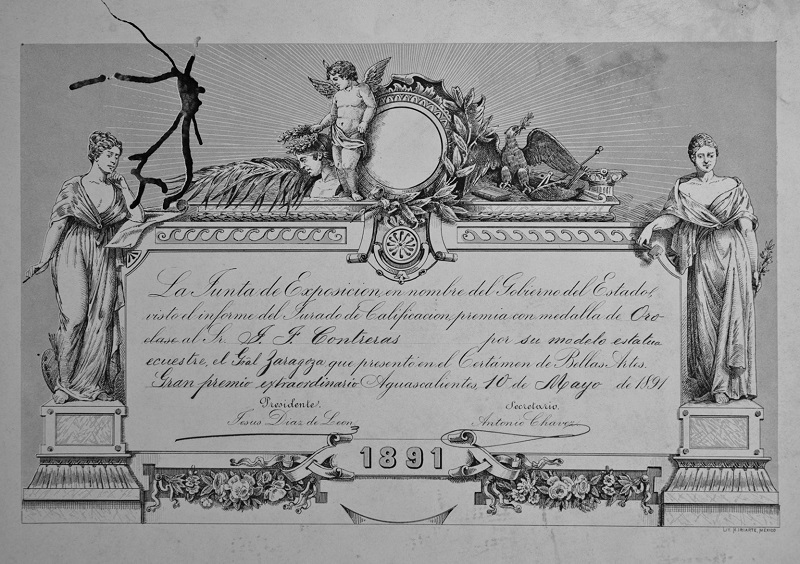 La Junta de Exposicion, en nombre del Gobierno del Estado,
visto el informe del Jurado de Calificacion, premia con medalla de Oro
clase al Sr. J. F. Contreras por su modelo estatua
ecuestre, el Gral Zaragoza que presentó en el Certámen de Bellas Artes.
Gran premio extraordinario Aguascalientes, 10 de Mayo de 1891
Presidente. Secretario.
Jesus Diaz de Leon Antonio Chavez
1891
LIT. IRIARTE, MEXICO